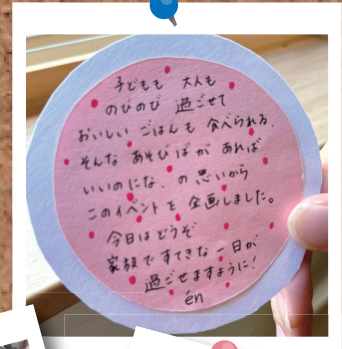 子どもも 大人も
のびのび 過ごせて
おいしい ごはんも 食べられる
そんな あそびばが あれば
いいのにな、の思いから
このイベントを 企画しました。
今日はどうぞ
家族ですてきな一日が
過ごせますように!
én